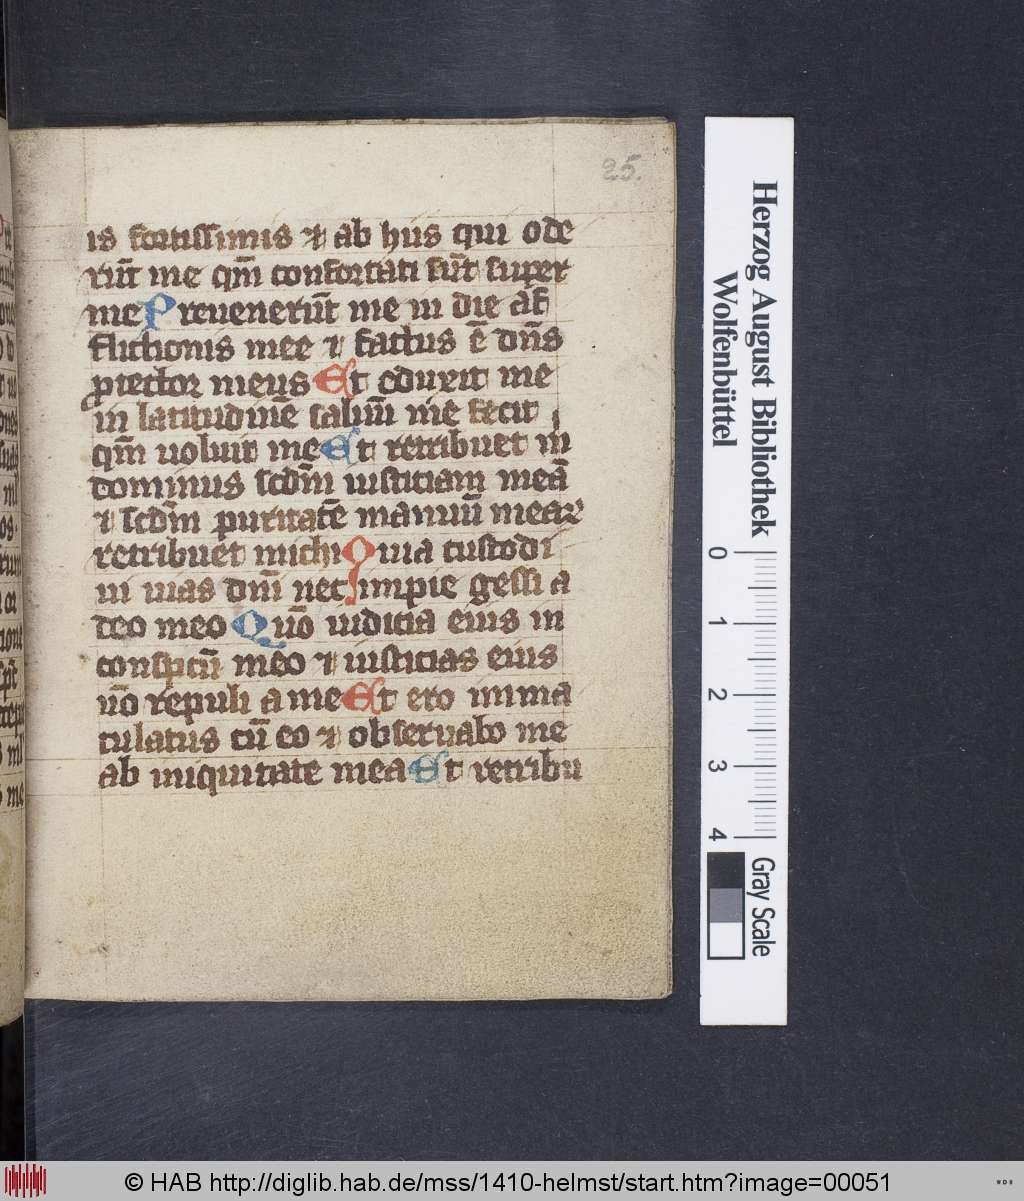 25.
is fortissimis ⁊ ab hijs qui ode
rūt me qm̄ confortati sūt super
me Preuenerūt me in die af
flictionis mee ⁊ factus ē dn̄s
ꝓtector meus Et eduxit me
in latitudinē saluū me fecit
qm̄ uoluit me Et retribuet m̄
dominus scd̄m iusticiam meā
⁊ scd̄m puritatē manuū mear
retribuet michi Quia custodi
ui uias dn̄i nec impie gessi a
deo meo Qūo iudicia eius in
conspctū meo ⁊ iusticias eius
nō repuli a me Et ero imma
culatus cū eo ⁊ obseruabo me
ab iniquitate mea Et retribu
Herzog August Bibliothek
Wolfenbüttel
0 1 2 3 4
Gray Scale
© HAB http://diglib.hab.de/mss/1410-helmst/start.htm?image=00051